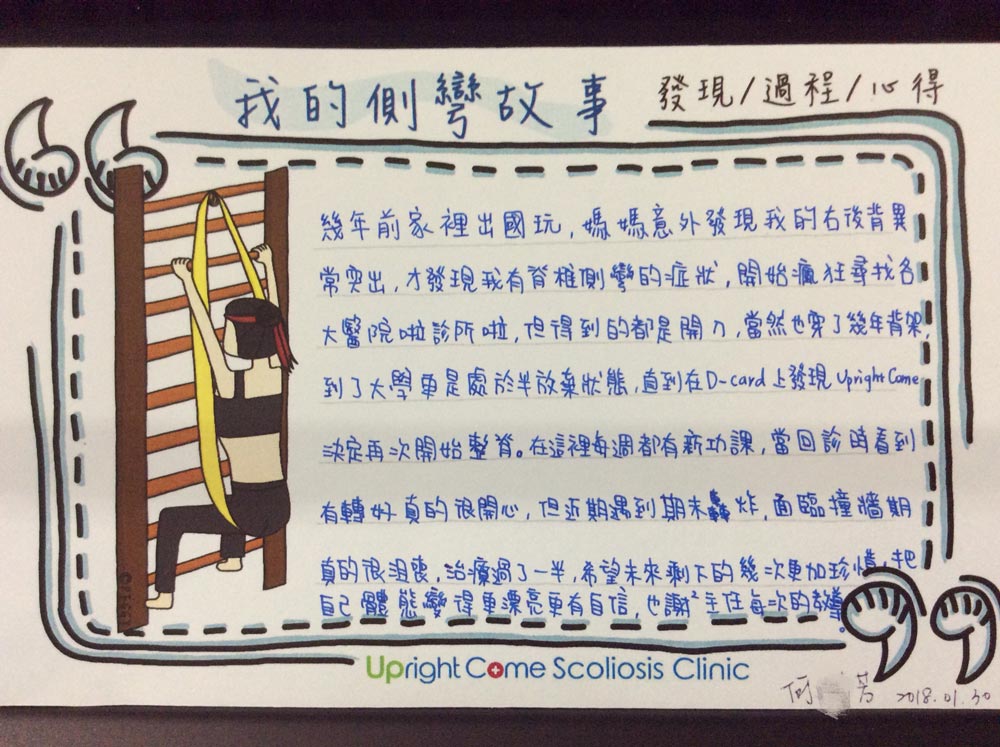 我的側彎故事 發現/過程/心得
幾年前家裡出國玩,媽媽意外發現我的右後背異
常突出,才發現我有脊椎側彎的症狀,開始瘋狂尋找各
大醫院啦診所啦,但得到的都是開刀,當然也穿了幾年背架,
到了大學更是處於半放棄狀態,直到在D-card上發現Upright Come
決定再次開始整脊。在這裡每週都有新功課,當回診時看到
有轉好真的很開心,但近期遇到期末轟炸,面臨撞牆期
真的很沮喪,治療過了一半,希望未來剩下的幾次更加珍惜,把
自己體態變得更漂亮更有自信,也謝²主任每次的教導。
Upright Come Scoliosis Clinic
何 芳 2018.01.30